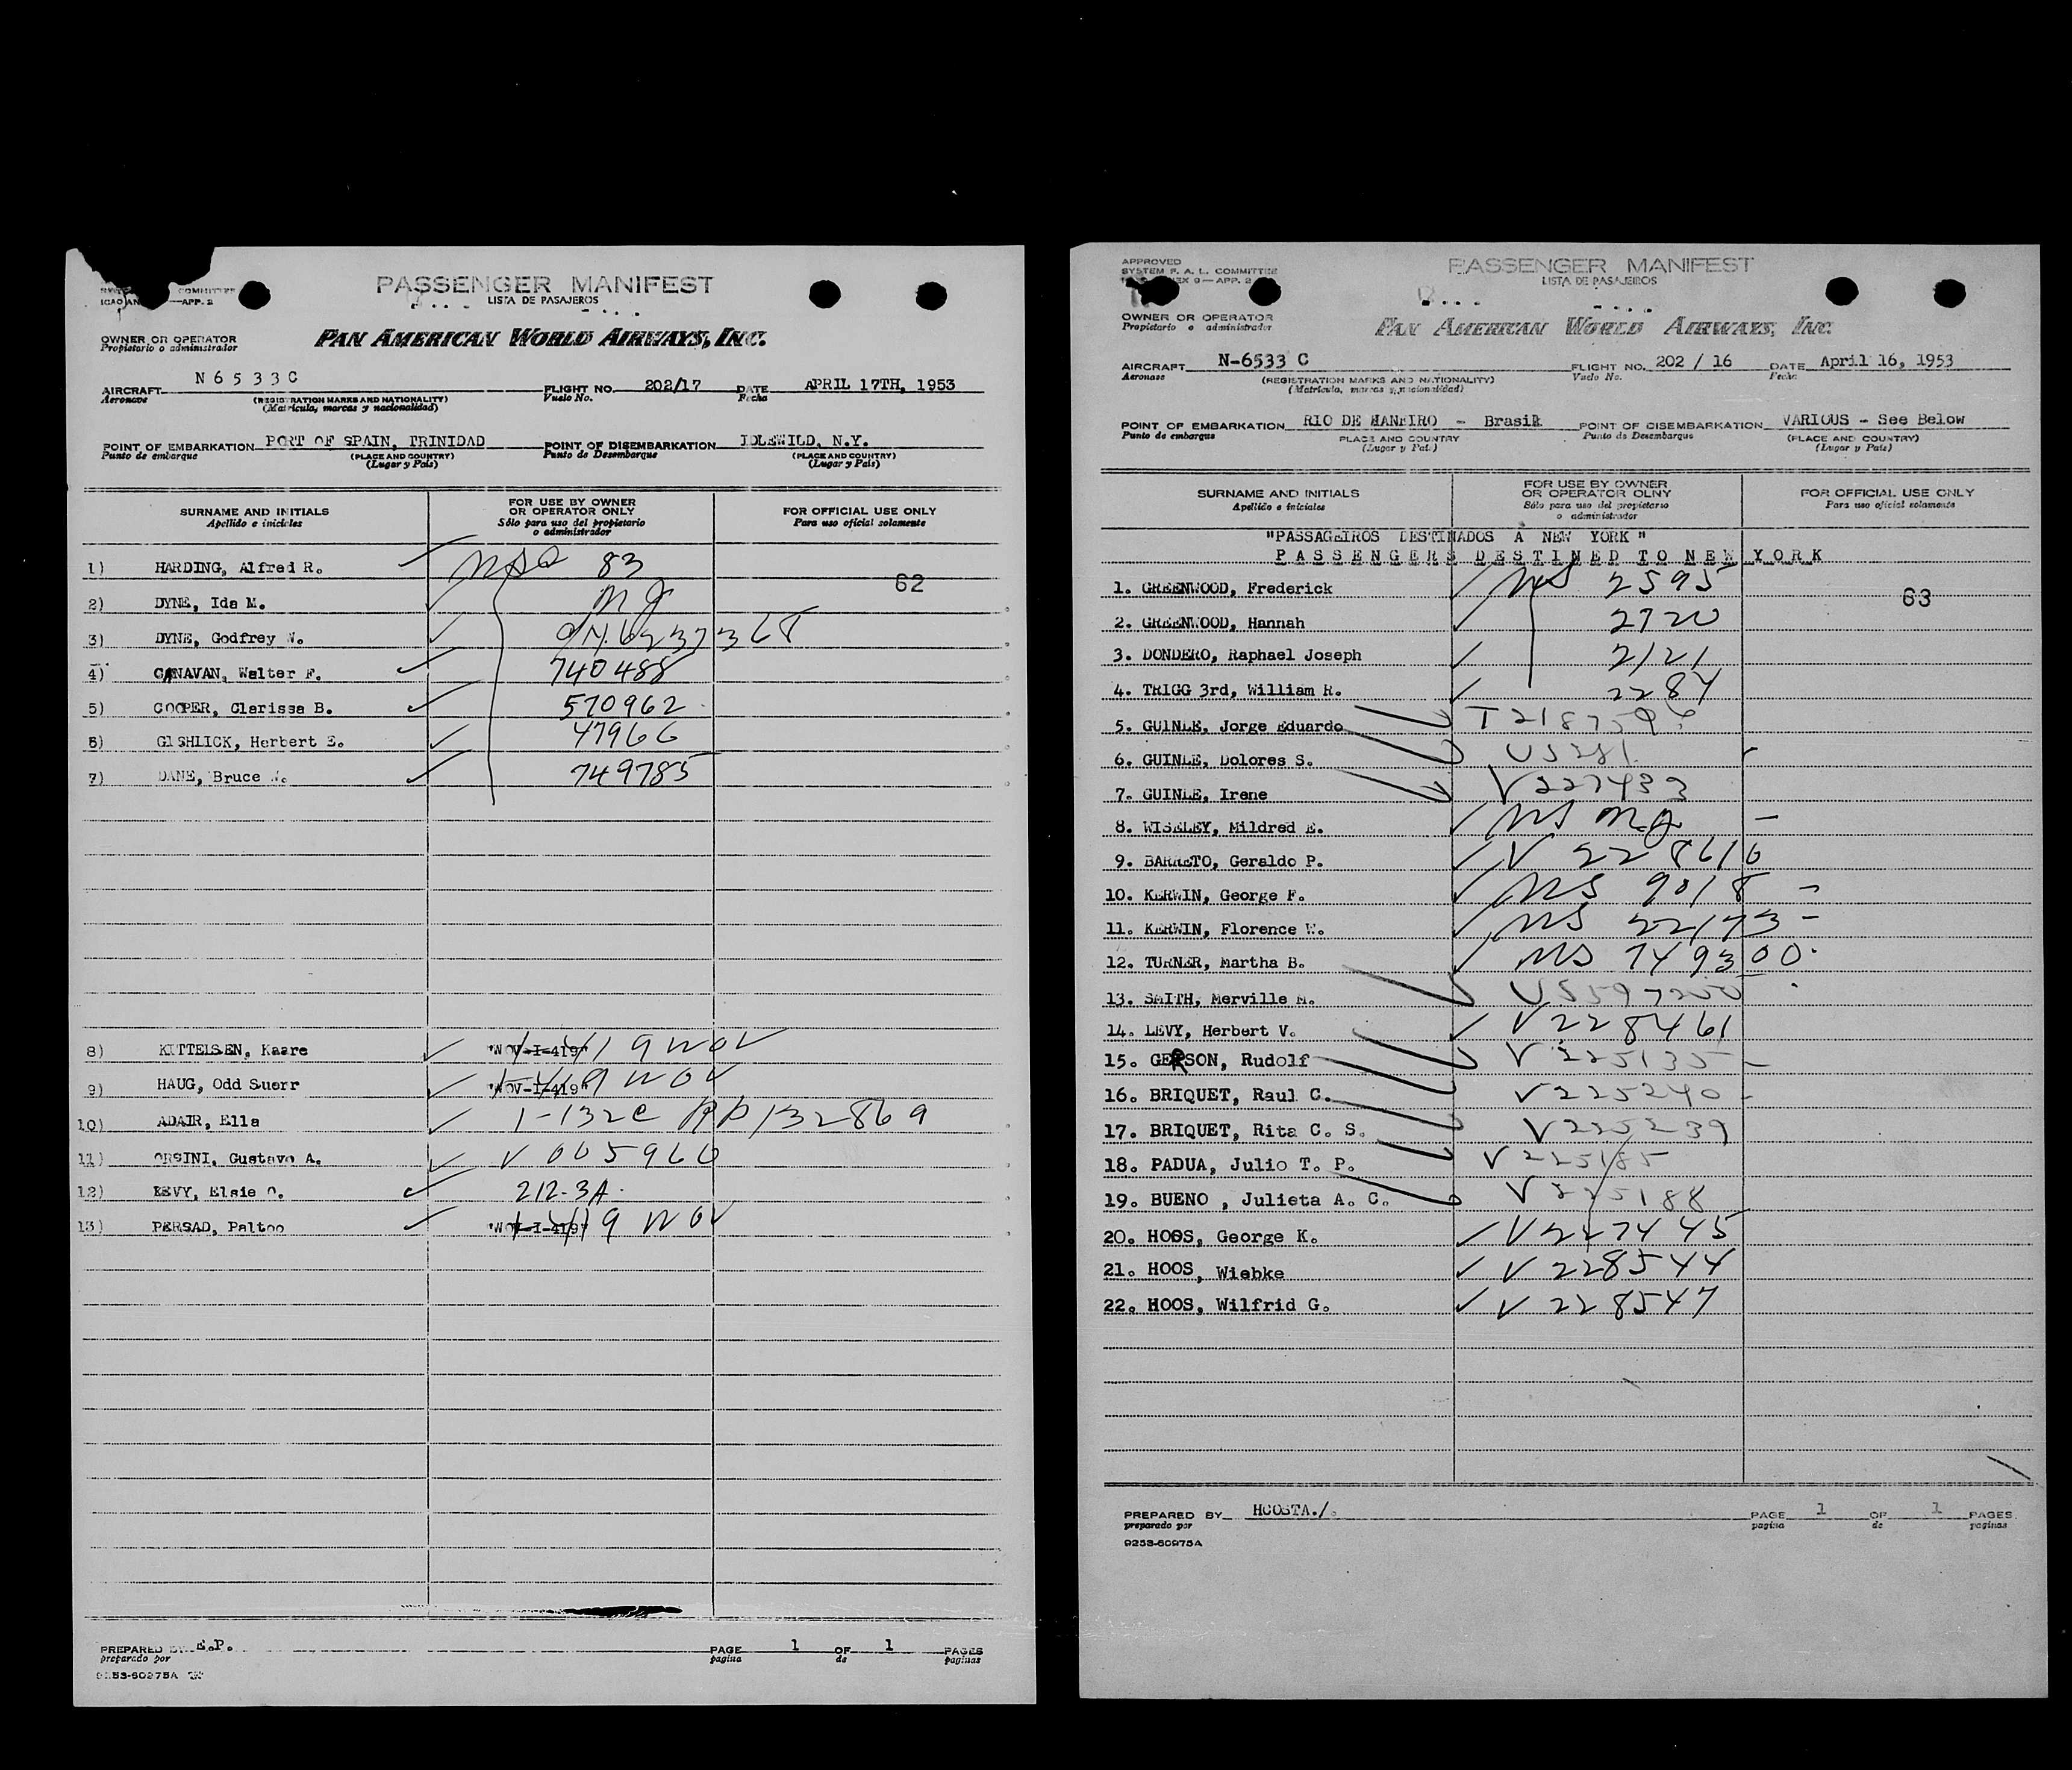 SYSTEM COMMITTEE
ICAO AN —APP. 2
PASSENGER MANIFEST
LISTA DE PASAJEROS
OWNER OR OPERATOR
Propietario o administrador
PAN AMERICAN WORLD AIRWAYS, INC.
AIRCRAFT N6533C FLIGHT NO. 202/17 DATE APRIL 17TH, 1953
Aeronave (REGISTRATION MARKS AND NATIONALITY) Vuelo No. Fecha
(Matrícula, marcas y nacionalidad)
POINT OF EMBARKATION PORT OF SPAIN, TRINIDAD POINT OF DISEMBARKATION IDLEWILD, N.Y.
Punto de embarque (PLACE AND COUNTRY) Punto de Desembarque (PLACE AND COUNTRY)
(Lugar y País) (Lugar y País)
SURNAME AND INITIALS FOR USE BY OWNER OR OPERATOR ONLY FOR OFFICIAL USE ONLY
Apellido e iniciales Sólo para uso del propietario o administrador Para uso oficial solamente
1) HARDING, Alfred R. 83
62
2) DYNE, Ida M.
3) DYNE, Godfrey W.
4) CANAVAN, Walter F. 740488
5) COOPER, Clarissa B. 570962
6) GISHLICK, Herbert E. 47966
7) DANE, Bruce W. 749785
8) KITTELSEN, Kaare "WOV-I-419" 1-419 WOV
9) HAUG, Odd Suerr "WOV-I-419" 1-419 WOV
10) ADAIR, Ella 1-132C PP132869
11) ORSINI, Gustavo A. V 005960
12) LEVY, Elsie O. 212-3A
13) PERSAD, Paltoo "WOV-I-419" 1-419 WOV
PREPARED BY E.P. PAGE 1 OF 1 PAGES
preparado por pagina de paginas
9253-60975A
APPROVED
SYSTEM F. A. L. COMMITTEE
EX 9—APP. 2
PASSENGER MANIFEST
LISTA DE PASAJEROS
OWNER OR OPERATOR
Propietario o administrador
PAN AMERICAN WORLD AIRWAYS, INC
AIRCRAFT N-6533 C FLIGHT NO. 202 / 16 DATE April 16, 1953
Aeronave (REGISTRATION MARKS AND NATIONALITY) Vuelo No. Fecha
(Matrícula, marcas y nacionalidad)
POINT OF EMBARKATION RIO DE HANEIRO - Brasil POINT OF DISEMBARKATION VARIOUS - See Below
Punto de embarque PLACE AND COUNTRY Punto de Desembarque (PLACE AND COUNTRY)
(Lugar y Pai.) (Lugar y País)
SURNAME AND INITIALS FOR USE BY OWNER OR OPERATOR OLNY FOR OFFICIAL USE ONLY
Apellido e iniciales Sólo para uso del propietario o administrador Para uso oficial solamente
"PASSAGEIROS DESTINADOS A NEW YORK"
PASSENGERS DESTINED TO NEW YORK
1. GREENWOOD, Frederick NS 2595
63
2. GREENWOOD, Hannah 2720
3. DONDERO, Raphael Joseph 2121
4. TRIGG 3rd, William R. 2284
5. GUINLE, Jorge Eduardo
6. GUINLE, Dolores S. US281
7. GUINLE, Irene V227433
8. WISELEY, Mildred E. NS
9. BARRETO, Geraldo P. V 228616
10. KERWIN, George F. NS 9018 -
11. KERWIN, Florence W. NS 22173 -
12. TURNER, Martha B. NS 749300
13. SMITH, Merville M.
14. LEVY, Herbert V. V228461
15. GERSON, Rudolf V225135 -
16. BRIQUET, Raul C. V225240 -
17. BRIQUET, Rita C. S. V225239
18. PADUA, Julio T. P. V225185
19. BUENO , Julieta A. C. V225188
20. HOOS, George K. V227445
21. HOOS, Wiebke V 228544
22. HOOS, Wilfrid G. V 228547
PREPARED BY HCOSTA./. PAGE 1 OF 1 PAGES
preparado por pagina de paginas
9253-60975A